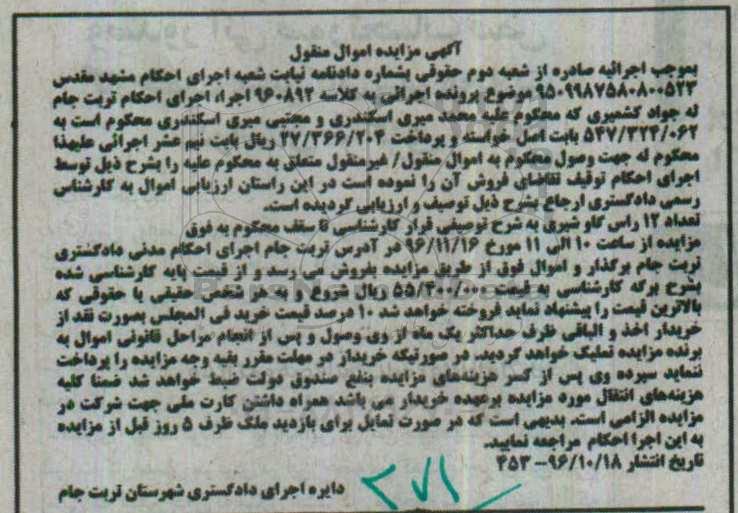 آگهی مزایده اموال منقول
بموجب اجرائیه صادره از شعبه دوم حقوقی بشماره دادنامه نیابت شعبه اجرای احکام مشهد مقدس
۹۵۰۹۹۸۷۵۸۰۸۰۰۵۲۳ موضوع پرونده اجرائی به کلاسه ۹۶۰۸۹۲ اجراء اجرای احکام تربت جام
له جواد کشمیری که محکوم علیه محمد میری اسکندری و مجتبی میری اسکندری محکوم است به
۵۴۷/۳۲۴/۰۶۲ بابت اصل خواسته و پرداخت ۲۷/۳۶۶/۲۰۴ ریال بابت نیم عشر اجرائی علیهذا
محکوم له جهت وصول محکوم به اموال منقول/ غیرمنقول متعلق به محکوم علیه را بشرح ذیل توسط
اجرای احکام توقیف تقاضای فروش آن را نموده است در این راستان ارزیابی اموال به کارشناس
رسمی دادگستری ارجاع بشرح ذیل توصیف و ارزیابی گردیده است.
تعداد ۱۲ راس گاو شیری به شرح توصیفی قرار کارشناسی تا سقف محکوم به فوق
مزایده از ساعت ۱۰ الی ۱۱ مورخ ۹۶/۱۱/۱۶ در آدرس تربت جام اجرای احکام مدنی دادگستری
تربت جام برگذار و اموال فوق از طریق مزایده بفروش می رسد و از قیمت پایه کارشناسی شده
بشرح برگه کارشناسی به قیمت ریال شروع و به هر شخص حقیقی یا حقوقی که
بالاترین قیمت را پیشنهاد نماید فروخته خواهد شد ۱۰ درصد قیمت خرید فی المجلس بصورت نقد از
خریدار اخذ و الباقی ظرف حداکثر یک ماه از وی وصول و پس از انجام مراحل قانونی اموال به
برنده مزایده تملیک خواهد گردید. در صورتیکه خریدار در مهلت مقرر بقیه وجه مزایده را پرداخت
ننماید سپرده وی پس از کسر هزینه‌های مزایده بنفع صندوق دولت ضبط خواهد شد ضمنا کلیه
هزینه‌های انتقال مورد مزایده برعهده خریدار می باشد همراه داشتن کارت ملی جهت شرکت در
مزایده الزامی است. بدیهی است که در صورت تمایل برای بازدید ملک ظرف ۵ روز قبل از مزایده
به این اجرا احکام مراجعه نمایید.
تاریخ انتشار ۹۶/۱۰/۱۸- ۴۵۳
دایره اجرای دادگستری شهرستان تربت جام
۲۷۱